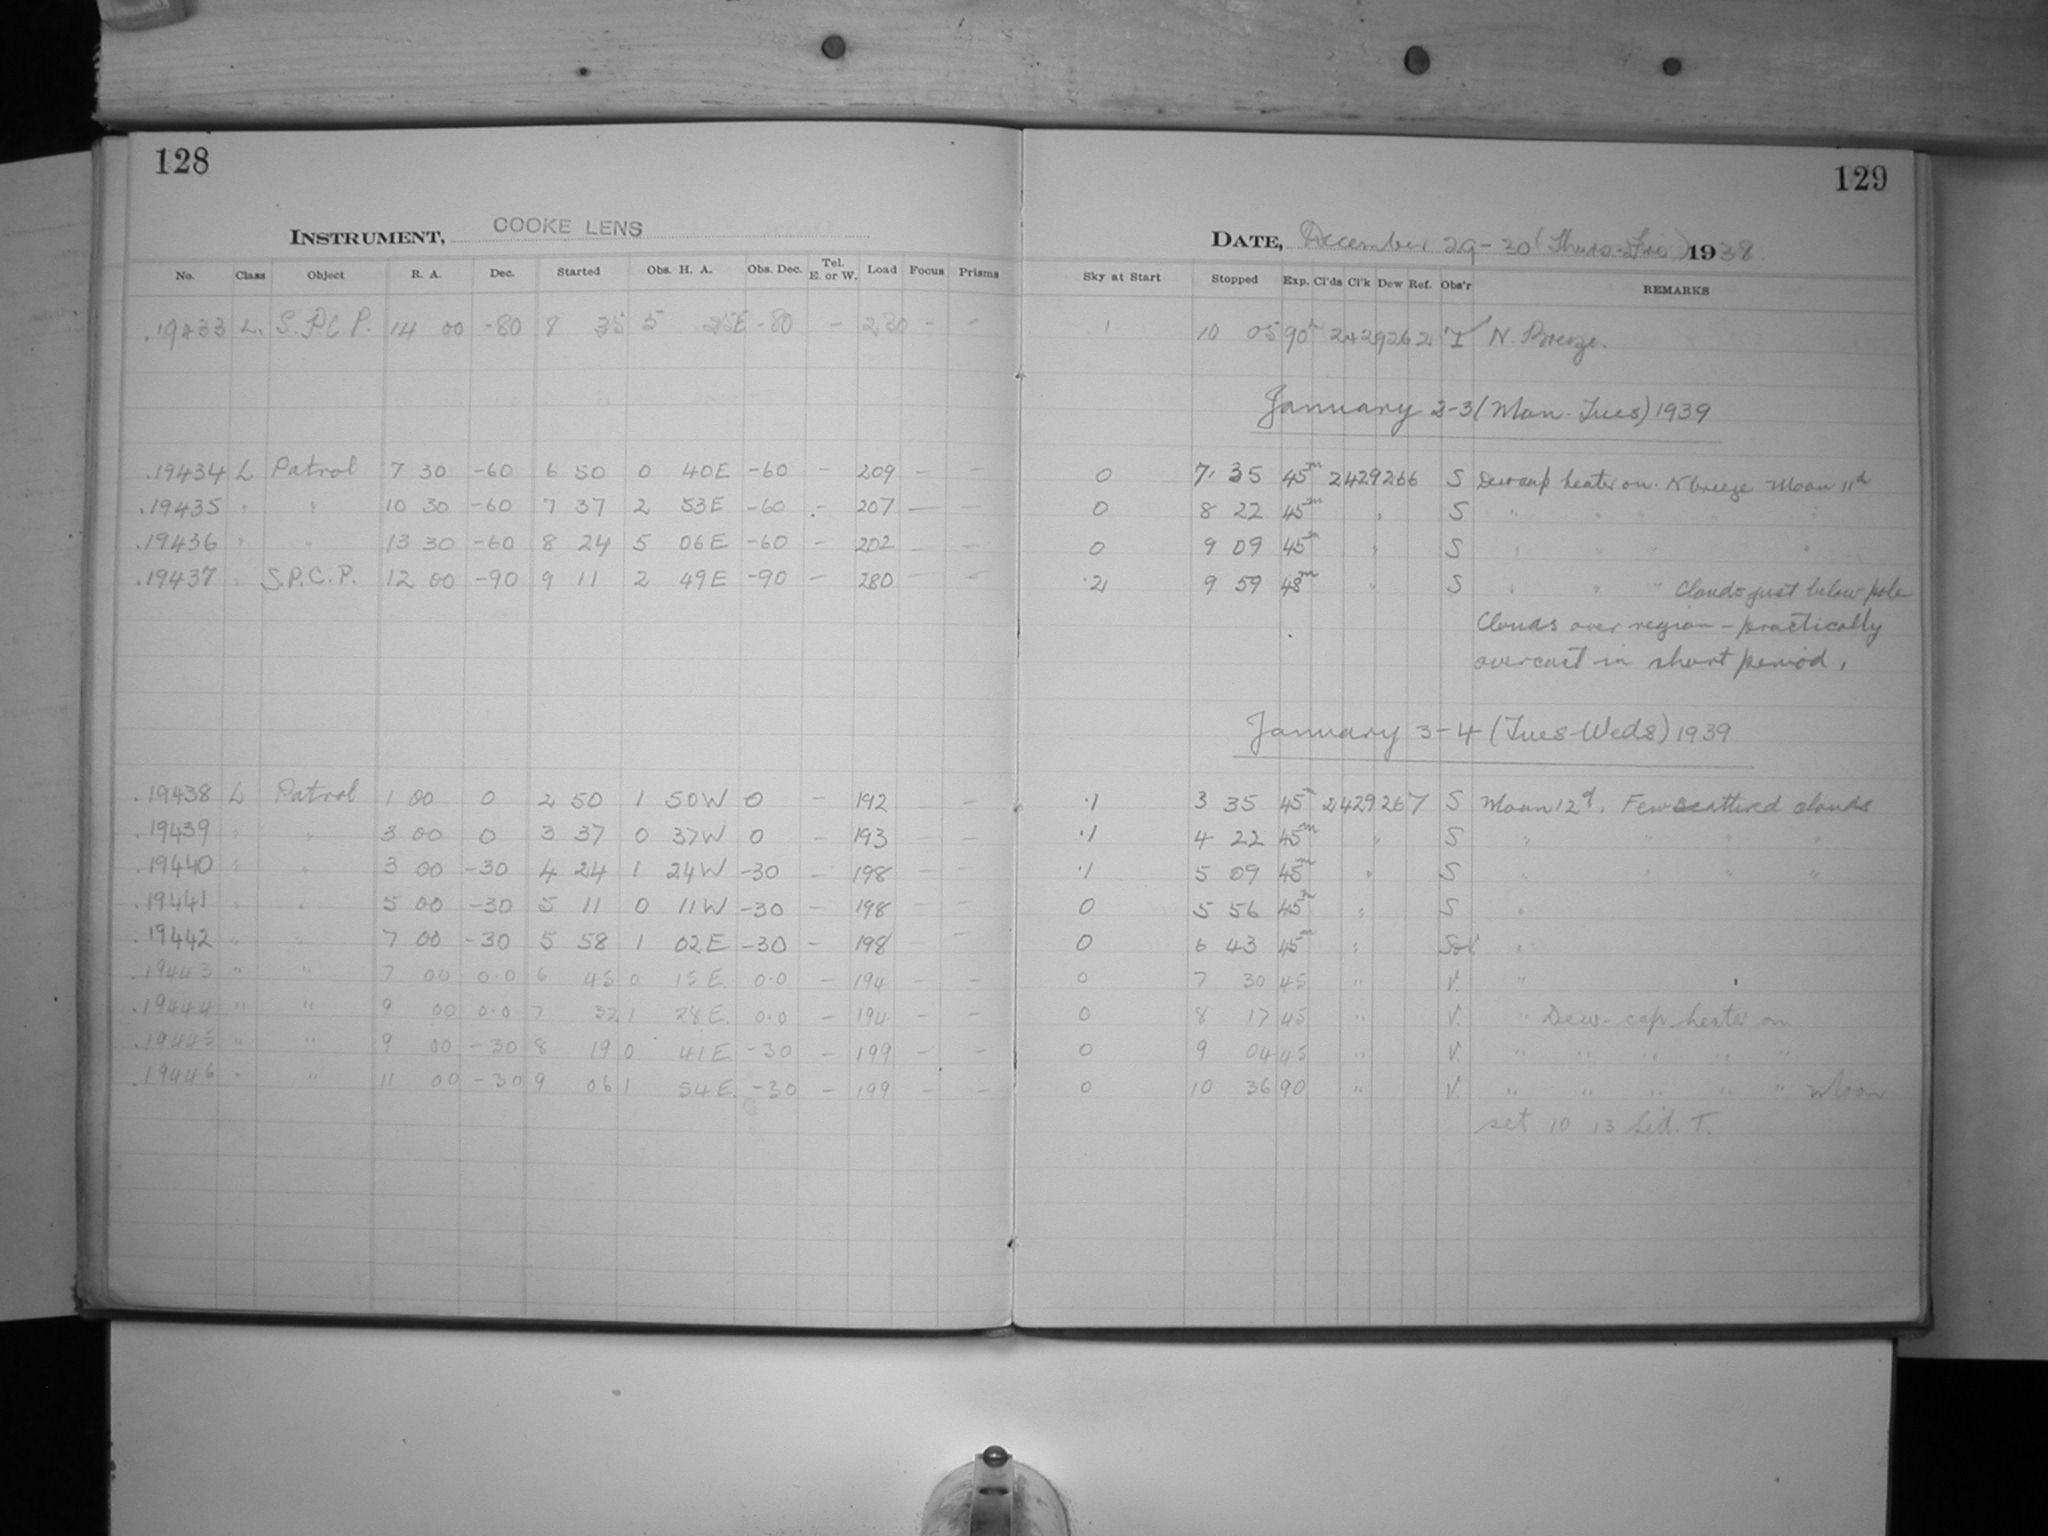 128
129
INSTRUMENT, COOKE LENS
DATE, December 29-30 (Thurs-Fri) 1938.
No. Class Object R. A. Dec. Started Obs. H. A. Obs. Dec. Tel. E. or W. Load Focus Prisms Sky at Start Stopped Exp. Cl'ds Cl'k Dew Ref. Obs'r REMARKS
.19433 L. S.P.C.P. 14 00 -80 8 35 5 25E -80 - 230 - - 1 10 05 90 2429262 N. Breeze.
January 2-3 (Mon-Tues) 1939
.19434 L Patrol 7 30 -60 6 50 0 40E -60 - 209 - - 0 7 35 45m 2429266 S Dewcap heater on. N breeze Moon 11d
.19435 " " 10 30 -60 7 37 2 53E -60 - 207 - - 0 8 22 45m " S " " " " "
.19436 " " 13 30 -60 8 24 5 06E -60 - 202 - - 0 9 09 45m " S " " " "
.19437 " S.P.C.P. 12 00 -90 9 11 2 49E -90 - 280 - - .2 9 59 48m " S " " " Clouds just below pole
Clouds over region - practically
overcast in short period.
January 3-4 (Tues-Weds) 1939
.19438 L Patrol 1 00 0 2 50 1 50W 0 - 192 - - .1 3 35 45m 2429267 S Moon 12d. Few scattered clouds
.19439 " " 3 00 0 3 37 0 37W 0 - 193 - - .1 4 22 45m " S " " " "
.19440 " " 3 00 -30 4 24 1 24W -30 - 198 - - .1 5 09 45m " S " " " "
.19441 " " 5 00 -30 5 11 0 11W -30 - 198 - - 0 5 56 45m " S "
.19442 " " 7 00 -30 5 58 1 02E -30 - 198 - 0 6 43 45m " "
.19443 " " 7 00 0.0 6 45 0 15E. 0.0 - 194 - - 0 7 30 45 " V. "
.19444 " " 9 00 0.0 7 32 1 28E. 0.0 - 194 - - 0 8 17 45 " V. " Dew-cap heater on
.19445 " " 9 00 -30 8 19 0 41E. -30 - 199 - - 0 9 04 45 " V. " " " " "
.19446 " " 11 00 -30 9 06 1 54E. -30 - 199 - - 0 10 36 90 " V. " " " " " Moon
set 10 13 Sid. T.